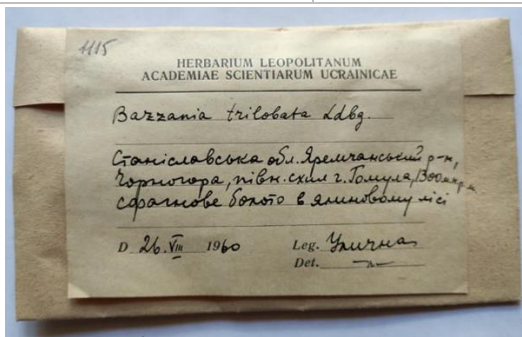 1115
HERBARIUM LEOPOLITANUM
ACADEMIAE SCIENTIARUM UCRAINICAE
Bazzania trilobata Ldbg.
Станіславська обл. Яремчанський р-н,
Чорногора, півн. схил г. Гомула,
сфагнове болото в ялиновому лісі
D 26.VIII 1960 Leg. Улична
Det. —"—